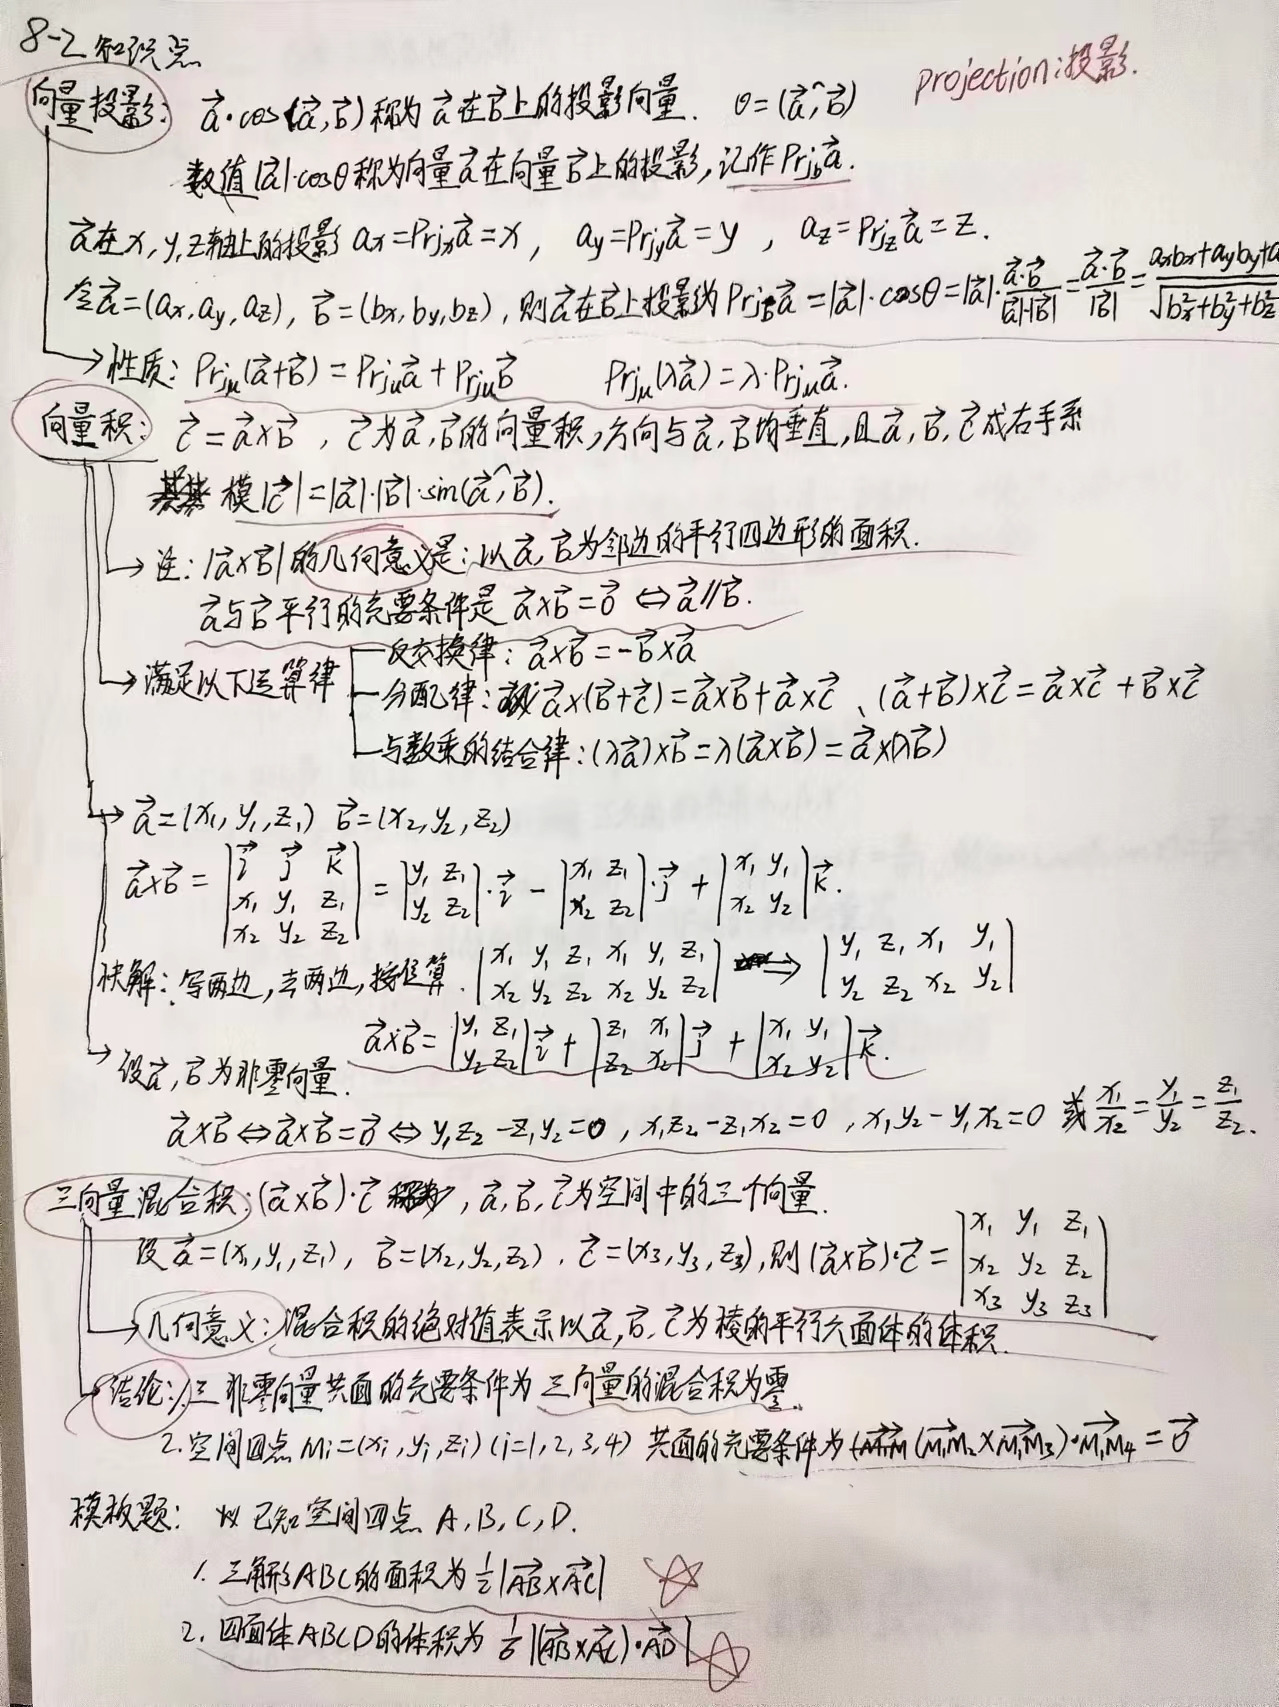 8-2知识点
projection:投影.
向量投影: $\vec{a}\cdot\cos(\vec{a},\vec{b})$称为$\vec{a}$在$\vec{b}$上的投影向量. $\theta=(\widehat{\vec{a},\vec{b}})$
数值$|\vec{a}|\cdot\cos\theta$称为向量$\vec{a}$在向量$\vec{b}$上的投影,记作$Prj_b\vec{a}$.
$\vec{a}$在x,y,z轴上的投影 $a_x=Prj_x\vec{a}=x$, $a_y=Prj_y\vec{a}=y$, $a_z=Prj_z\vec{a}=z$.
令$\vec{a}=(a_x,a_y,a_z)$, $\vec{b}=(b_x,b_y,b_z)$,则$\vec{a}$在$\vec{b}$上投影为$Prj_{\vec{b}}\vec{a}=|\vec{a}|\cdot\cos\theta=|\vec{a}|\cdot\frac{\vec{a}\cdot\vec{b}}{|\vec{a}|\cdot|\vec{b}|}=\frac{\vec{a}\cdot\vec{b}}{|\vec{b}|}=\frac{a_xb_x+a_yb_y+a}{\sqrt{b_x^2+b_y^2+b_z^2}}$
→性质: $Prj_\mu(\vec{a}+\vec{b})=Prj_\mu\vec{a}+Prj_\mu\vec{b}$ $Prj_\mu(\lambda\vec{a})=\lambda\cdot Prj_\mu\vec{a}$.
向量积: $\vec{c}=\vec{a}\times\vec{b}$, $\vec{c}$为$\vec{a},\vec{b}$的向量积,方向与$\vec{a},\vec{b}$均垂直,且$\vec{a},\vec{b},\vec{c}$成右手系
模$|\vec{c}|=|\vec{a}|\cdot|\vec{b}|\cdot\sin(\widehat{\vec{a},\vec{b}})$.
→注: $|\vec{a}\times\vec{b}|$的几何意义是:以$\vec{a},\vec{b}$为邻边的平行四边形的面积.
$\vec{a}$与$\vec{b}$平行的充要条件是 $\vec{a}\times\vec{b}=\vec{0}\Leftrightarrow\vec{a}//\vec{b}$.
反交换律: $\vec{a}\times\vec{b}=-\vec{b}\times\vec{a}$
→满足以下运算律 分配律: $\vec{a}\times(\vec{b}+\vec{c})=\vec{a}\times\vec{b}+\vec{a}\times\vec{c}$、$(\vec{a}+\vec{b})\times\vec{c}=\vec{a}\times\vec{c}+\vec{b}\times\vec{c}$
与数乘的结合律: $(\lambda\vec{a})\times\vec{b}=\lambda(\vec{a}\times\vec{b})=\vec{a}\times(\lambda\vec{b})$
→ $\vec{a}=(x_1,y_1,z_1)$ $\vec{b}=(x_2,y_2,z_2)$
$\vec{a}\times\vec{b}=\begin{vmatrix}\vec{i}&\vec{j}&\vec{k}\\x_1&y_1&z_1\\x_2&y_2&z_2\end{vmatrix}=\begin{vmatrix}y_1&z_1\\y_2&z_2\end{vmatrix}\cdot\vec{i}-\begin{vmatrix}x_1&z_1\\x_2&z_2\end{vmatrix}\cdot\vec{j}+\begin{vmatrix}x_1&y_1\\x_2&y_2\end{vmatrix}\vec{k}$.
快解: 写两边,去两边,按位算. $\begin{vmatrix}x_1&y_1&z_1&x_1&y_1&z_1\\x_2&y_2&z_2&x_2&y_2&z_2\end{vmatrix}\Rightarrow\begin{vmatrix}y_1&z_1&x_1&y_1\\y_2&z_2&x_2&y_2\end{vmatrix}$
$\vec{a}\times\vec{b}=\begin{vmatrix}y_1&z_1\\y_2&z_2\end{vmatrix}\vec{i}+\begin{vmatrix}z_1&x_1\\z_2&x_2\end{vmatrix}\vec{j}+\begin{vmatrix}x_1&y_1\\x_2&y_2\end{vmatrix}\vec{k}$.
→设$\vec{a},\vec{b}$为非零向量.
$\vec{a}\times\vec{b}\Leftrightarrow\vec{a}\times\vec{b}=\vec{0}\Leftrightarrow y_1z_2-z_1y_2=0,x_1z_2-z_1x_2=0,x_1y_2-y_1x_2=0$ 或$\frac{x_1}{x_2}=\frac{y_1}{y_2}=\frac{z_1}{z_2}$.
三向量混合积: $(\vec{a}\times\vec{b})\cdot\vec{c}$ , $\vec{a},\vec{b},\vec{c}$为空间中的三个向量.
设$\vec{a}=(x_1,y_1,z_1)$, $\vec{b}=(x_2,y_2,z_2)$, $\vec{c}=(x_3,y_3,z_3)$,则$(\vec{a}\times\vec{b})\cdot\vec{c}=\begin{vmatrix}x_1&y_1&z_1\\x_2&y_2&z_2\\x_3&y_3&z_3\end{vmatrix}$
→几何意义: 混合积的绝对值表示以$\vec{a},\vec{b},\vec{c}$为棱的平行六面体的体积.
→结论: 1.三非零向量共面的充要条件为三向量的混合积为零.
2.空间四点$M_i=(x_i,y_i,z_i)(i=1,2,3,4)$ 共面的充要条件为$(\overrightarrow{M_1M_2}\times\overrightarrow{M_1M_3})\cdot\overrightarrow{M_1M_4}=\vec{0}$
模板题: 已知空间四点A,B,C,D.
1.三角形ABC的面积为$\frac{1}{2}|\overrightarrow{AB}\times\overrightarrow{AC}|$
2.四面体ABCD的体积为$\frac{1}{6}|(\overrightarrow{AB}\times\overrightarrow{AC})\cdot\overrightarrow{AD}|$